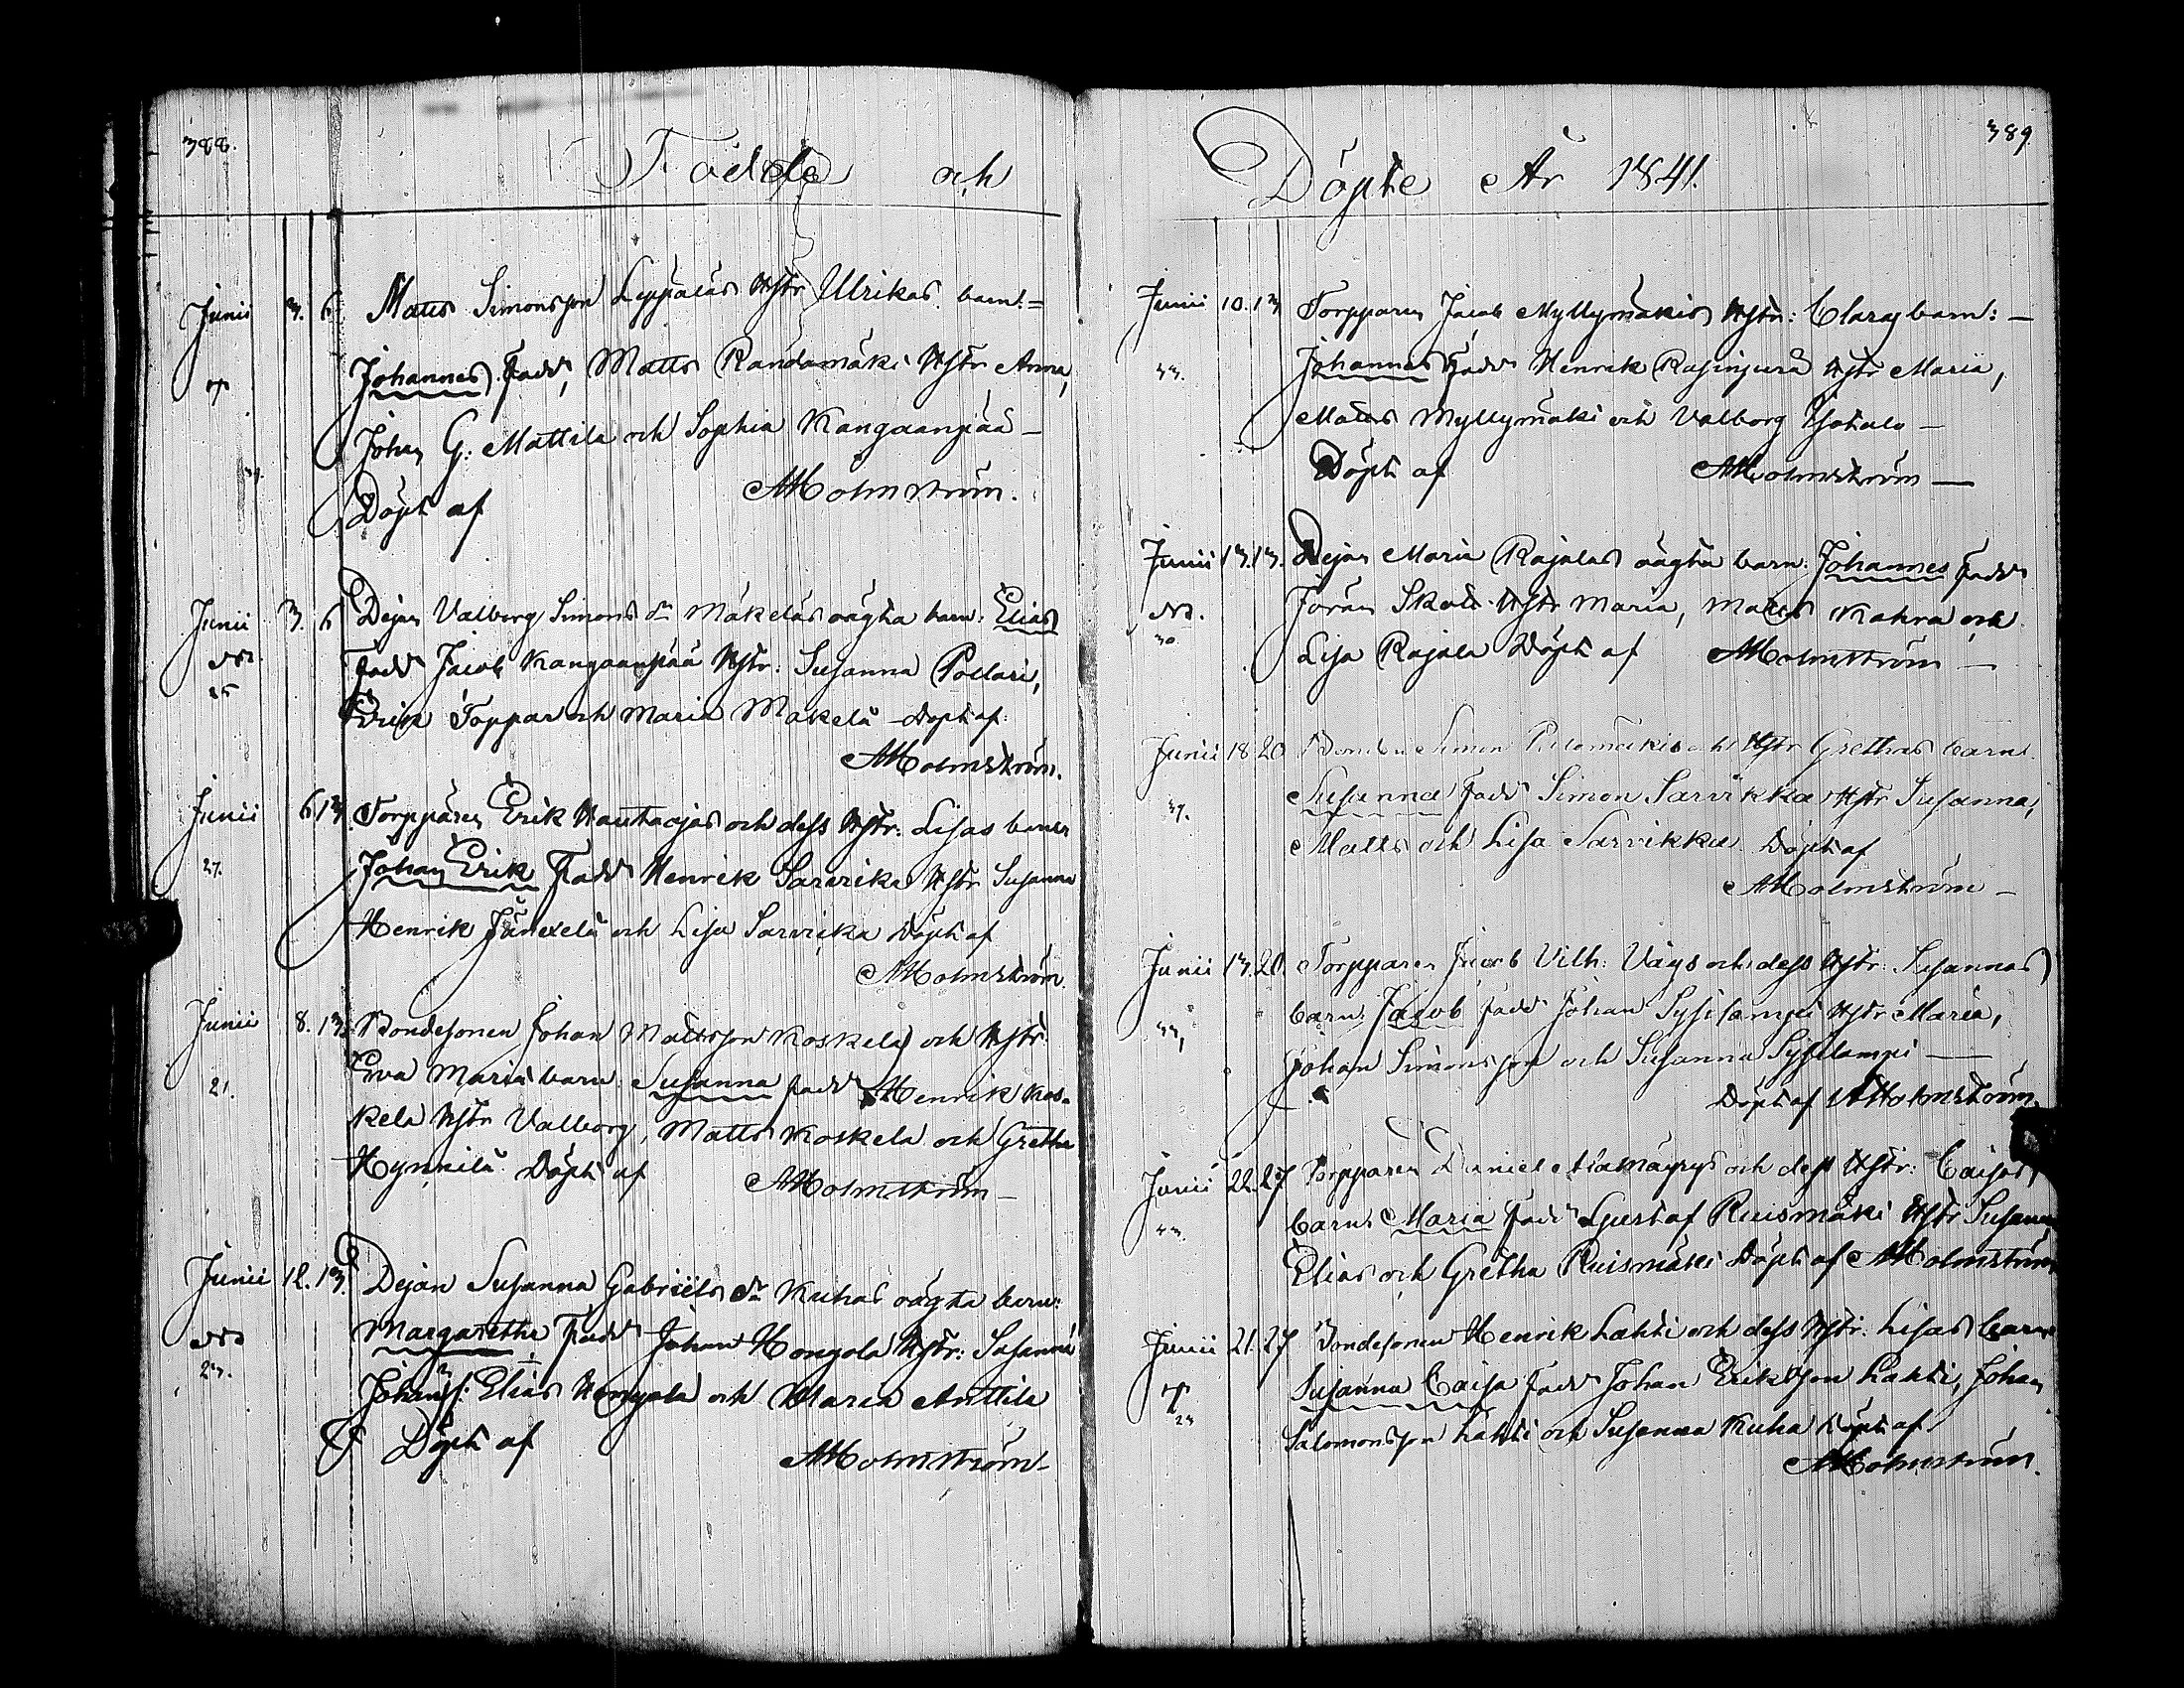 388.
Födde och
Junii 3. 6 Matts Simonsson Leppälas Hstr Ulrikas barn:=
Johannes Fadd, Matts Randamäki Hstr Anna,
Johan G: Mattila och Sophia Kangaanpää –
39.
Döpt af AHolmström.
Junii 3. 6 Pigan Valborg Simons dr Mäkeläs oägta barn: Elias
25 Fadd Jacob Kangaanpää Hstr: Susanna Pollari,
Erik Toppar och Maria Mäkelä – Döpt af:
AHolmström.
Junii 6 13. Torpparen Erik Hautaojas och dess Hstr: Lisas barn
27. Johan Erik Fadd Henrik Sarvika Hstr Susanna
Henrik och Lisa Sarvika Döpt af
AHolmström.
Junii 8. 13. Bondesonen Johan Mattsson Koskela och Hstr
21. Eva Maria barn: Susanna fadd Henrik Kos-
kela Hstr Valborg, Matts Koskela och Gretha
Hynnilä Döpt af AHolmström –
Junii 12. 13. Pigan Susanna Gabriels dr Kuhas oägta barn:
23. Margaretha Fadd Johan Hongola Hstr: Susanna
Johans s: Elias Hongola och Maria Anttila
Döpt af
AHolmström –
389.
Döpte År 1841.
Junii 10. 13 Torpparen Jacob Myllymäkis Hstr: Claras barn: –
33. Johannes Fadd Henrik Hstr Maria,
Matts Myllymäki och Valborg –
Döpt af AHolmström –
Junii 13. 13. Pigan Maria Rajalas oägta barn: Johannes fadd
30 Jöran Skott Hstr Maria, Matts Kahra och
Lisa Rajala Döpt af AHolmström –
Junii 18 20 Bonden Simon och Hstr Grethas barn
37. Susanna fadd Simon Sarvikka Hstr Susanna,
Matts och Lisa Sarvikka Döpt af
AHolmström –
Junii 13. 20. Torpparen Jacob Vilh: och dess Hstr: Susannas
33, barn: Jacob fadd Johan Sysilampi Hstr Maria,
Johan Simonsson och Susanna Sysilampi –
Döpt af AHolmström.
Junii 22. 27 Torpparen Daniel och dess Hstr: Caisas
33. barn: Maria Fadd Gustaf Ruismäki Hstr Susanna
Elias och Gretha Ruismäki Döpt af AHolmström
Junii 21. 27 Bondesonen Henrik Lahti och dess Hstr: Lisas barn
Susanna Caisa fadd Johan Eriksson Lahti, Johan
23 Salomonsson Lahti och Susanna Kuha Döpt af
AHolmström.